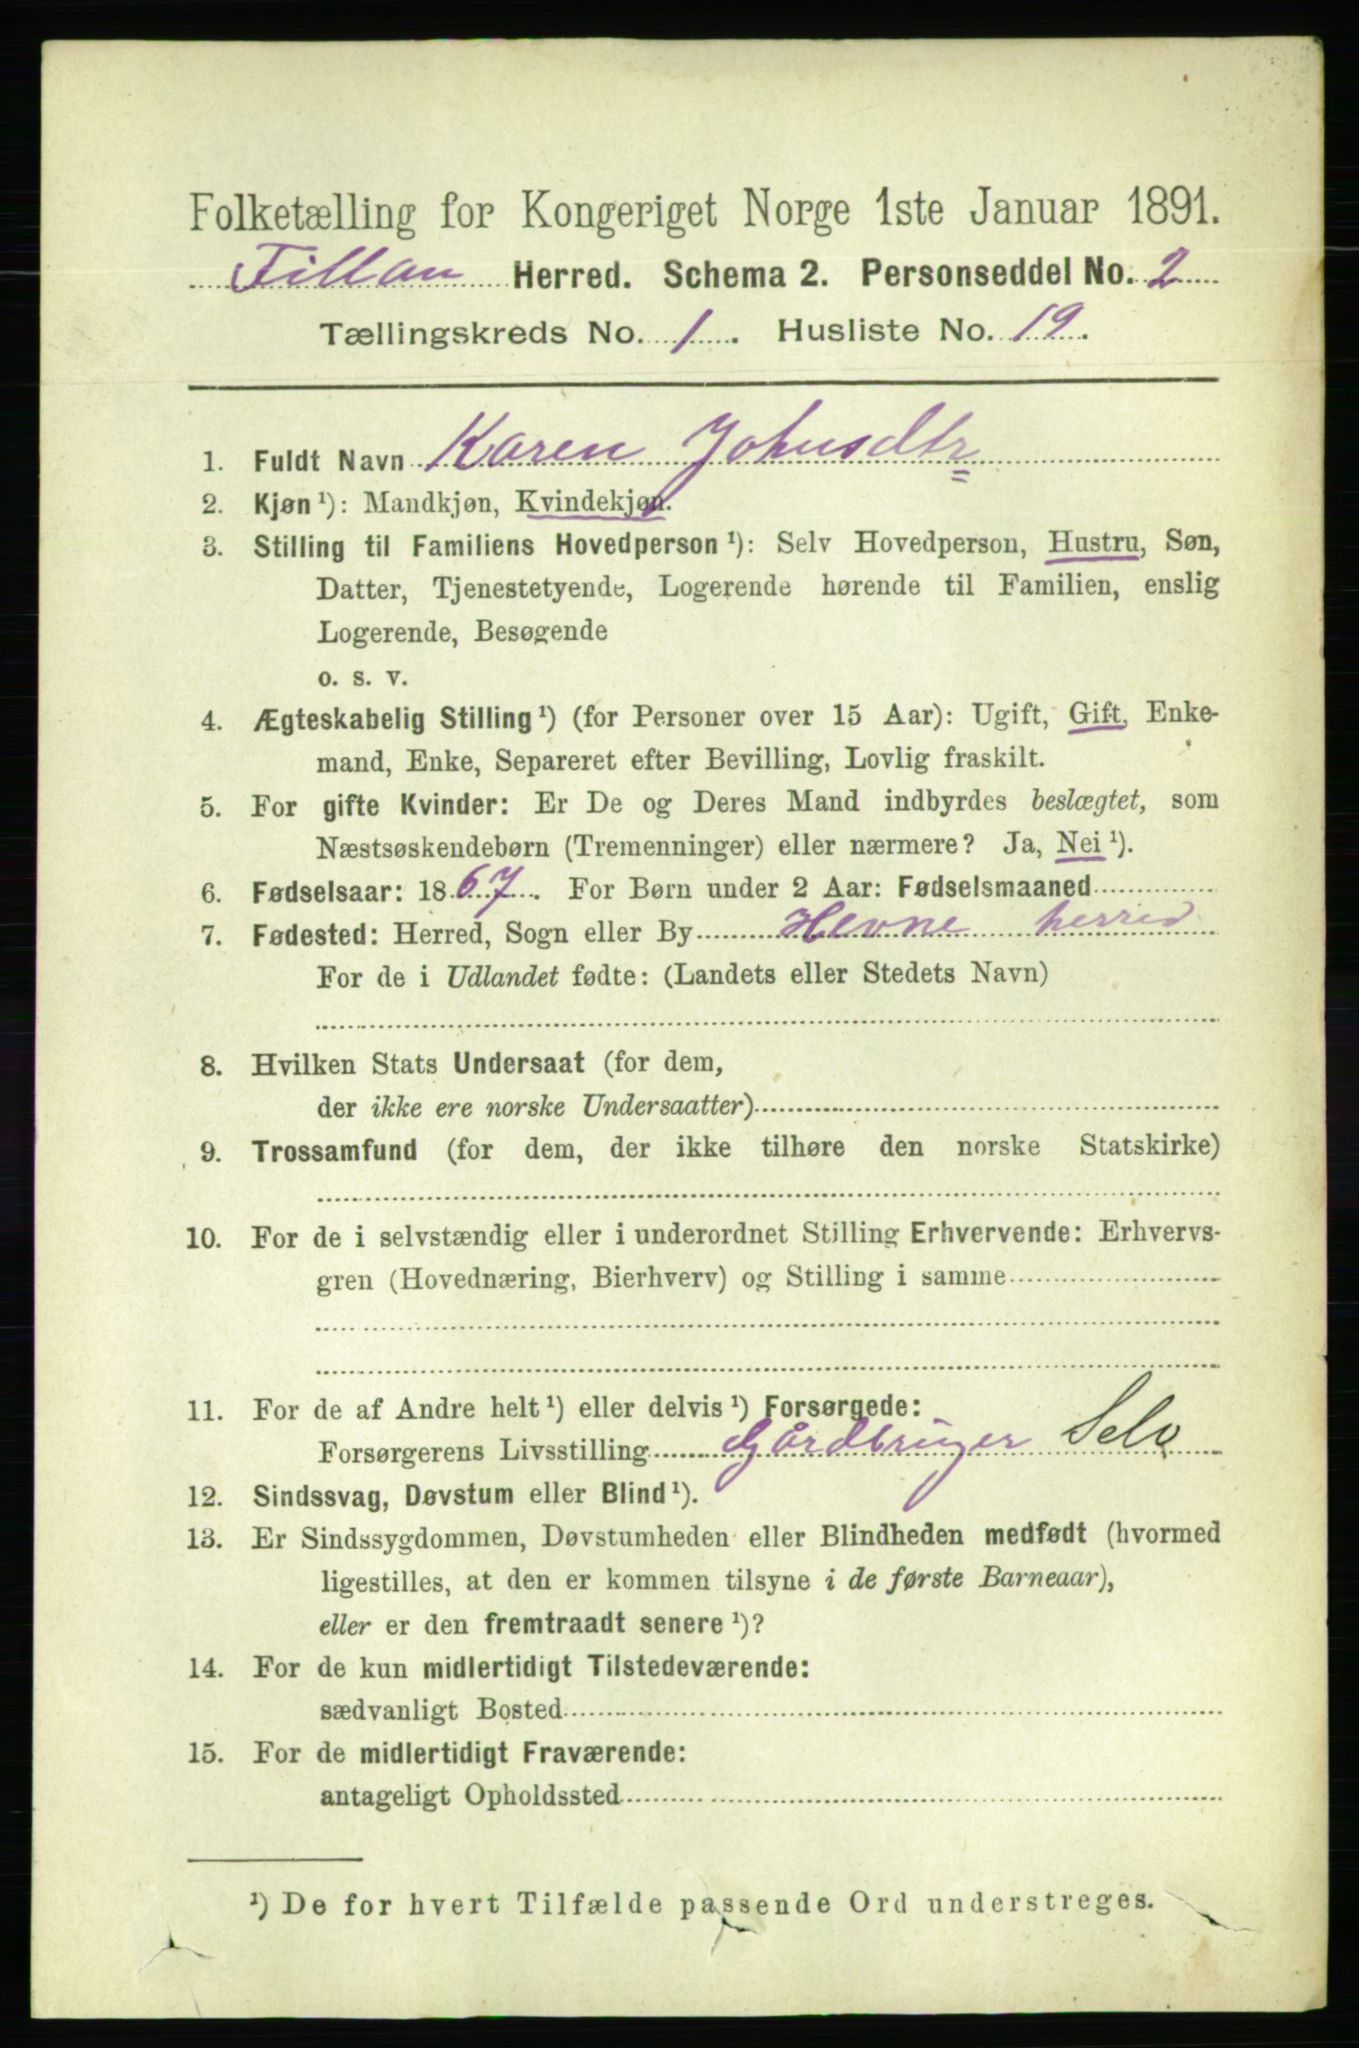 Folketælling for Kongeriget Norge 1ste Januar 1891.
Fillan Herred. Schema 2. Personseddel No. 2
Tællingskreds No. 1. Husliste No. 19.
1. Fuldt Navn Karen Johnsdtr
2. Kjøn ¹): Mandkjøn, Kvindekjøn.
3. Stilling til Familiens Hovedperson ¹): Selv Hovedperson, Hustru, Søn,
Datter, Tjenestetyende, Logerende hørende til Familien, enslig
Logerende, Besøgende
o. s. v.
4. Ægteskabelig Stilling ¹) (for Personer over 15 Aar): Ugift, Gift, Enke-
mand, Enke, Separeret efter Bevilling, Lovlig fraskilt.
5. For gifte Kvinder: Er De og Deres Mand indbyrdes beslægtet, som
Næstsøskendebørn (Tremenninger) eller nærmere? Ja, Nei ¹).
6. Fødselsaar: 1867. For Børn under 2 Aar: Fødselsmaaned
7. Fødested: Herred, Sogn eller By Hevne herred
For de i Udlandet fødte: (Landets eller Stedets Navn)
8. Hvilken Stats Undersaat (for dem,
der ikke ere norske Undersaatter)
9. Trossamfund (for dem, der ikke tilhøre den norske Statskirke)
10. For de i selvstændig eller i underordnet Stilling Erhvervende: Erhvervs-
gren (Hovednæring, Bierhverv) og Stilling i samme
11. For de af Andre helt ¹) eller delvis ¹) Forsørgede:
Forsørgerens Livsstilling Gårdbruger Selv
12. Sindssvag, Døvstum eller Blind ¹).
13. Er Sindssygdommen, Døvstumheden eller Blindheden medfødt (hvormed
ligestilles, at den er kommen tilsyne i de første Barneaar),
eller er den fremtraadt senere ¹)?
14. For de kun midlertidigt Tilstedeværende:
sædvanligt Bosted
15. For de midlertidigt Fraværende:
antageligt Opholdssted
¹) De for hvert Tilfælde passende Ord understreges.